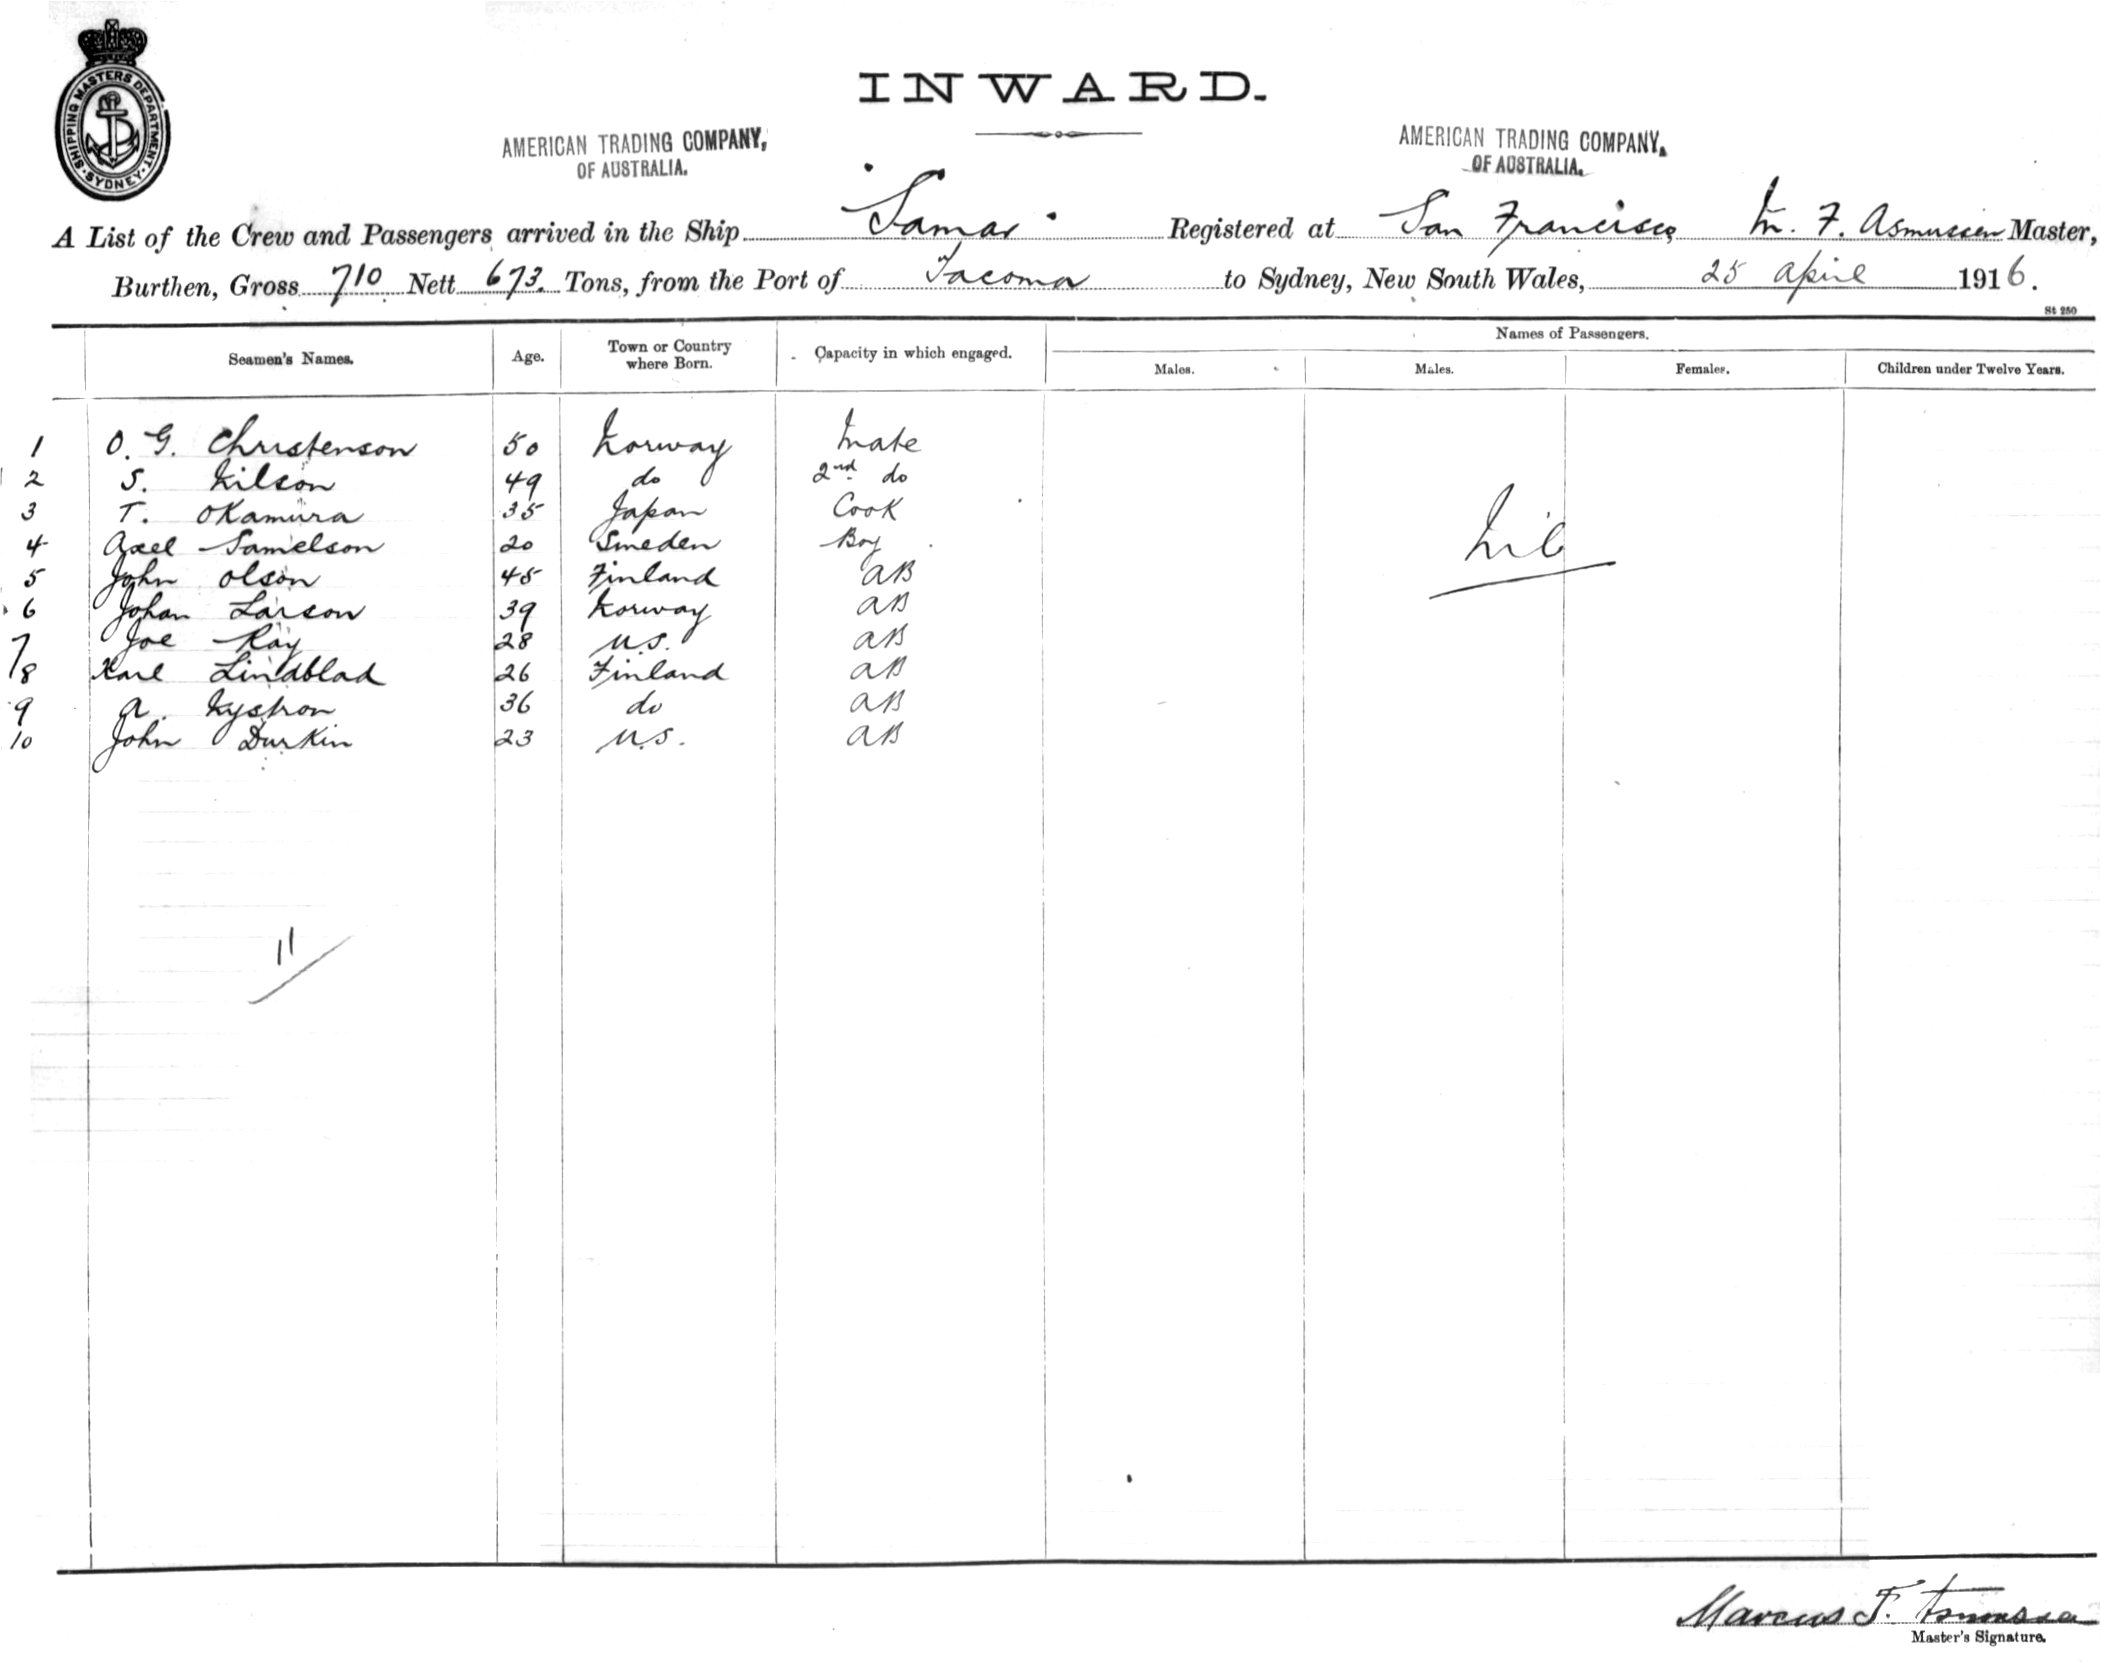 SHIPPING MASTERS DEPARTMENT. SYDNEY
INWARD.
AMERICAN TRADING COMPANY, OF AUSTRALIA.
AMERICAN TRADING COMPANY, OF AUSTRALIA.
A List of the Crew and Passengers arrived in the Ship "Samar" Registered at San Francisco, M. F. Asmussen Master,
Burthen, Gross 710 Nett 673. Tons, from the Port of Tacoma to Sydney, New South Wales, 25 April 1916.
St 250
Seamen's Names. Age. Town or Country where Born. Capacity in which engaged. Names of Passengers.
Males. Males. Females. Children under Twelve Years.
1 O. G. Christenson 50 Norway Mate
2 S. Nilson 49 do 2nd do
3 T. Okamura 35 Japan Cook
4 Axel Samelson 20 Sweden Boy
Nil
5 John Olson 45 Finland AB
6 Johan Larson 39 Norway AB
7 Joe Ray 28 U.S. AB
8 Karl Lindblad 26 Finland AB
9 A. Nystron 36 do AB
10 John Durkin 23 U.S. AB
11
Marcus F. Asmussen
Master's Signature.